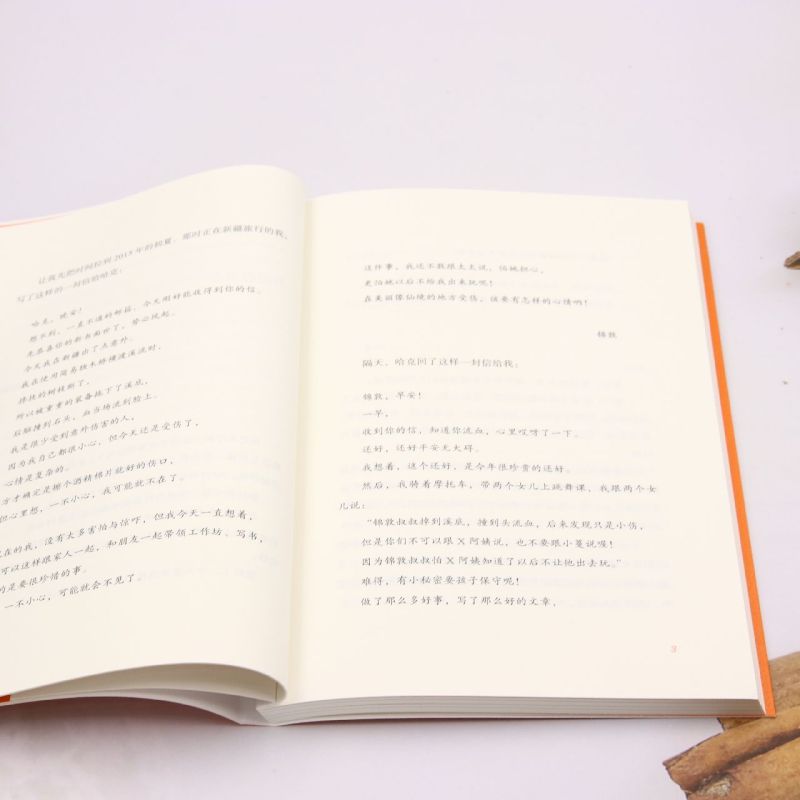 让我先把时间拉到 2015 年的初夏，那时正在新疆旅行的我，
写了这样的一封信给哈克：
哈克，晚安！
想不到，一直不通的邮箱，今天刚好能收得到你的信。
先恭喜你的新书面世了，势必风起。
今天我在新疆出了点意外。
我在使用简易独木桥横渡溪流时，
撑扶的树枝断了，
所以被重重的装备拖下了溪底，
后脑撞到石头，血当场流到脸上。
我是很少受到意外伤害的人，
因为我自己都很小心，但今天还是受伤了。
心情是复杂的。
方才确定是擦个酒精棉片就好的伤口，
但心里想，一不小心，我可能就不在了。
现在的我，没有太多害怕与惊吓，但我今天一直想着，
可以这样跟家人一起，和朋友一起带领工作坊、写书，
的是要很珍惜的事。
一不小心，可能就会不见了。
这件事，我还不敢跟太太说，怕她担心，
更怕她以后不给我出来玩呢！
在美丽像仙境的地方受伤，该要有怎样的心情啊！
锦敦
隔天，哈克回了这样一封信给我：
锦敦，早安！
一早，
收到你的信，知道你流血，心里哎呀了一下。
还好，还好平安无大碍。
我想着，这个还好，是今年很珍贵的还好。
然后，我骑着摩托车，带两个女儿上跳舞课，我跟两个女
儿说：
“锦敦叔叔掉到溪底，撞到头流血，后来发现只是小伤，
但是你们不可以跟 X 阿姨说，也不要跟小蔓说喔！
因为锦敦叔叔怕 X 阿姨知道了以后不让他出去玩。”
难得，有小秘密要孩子保守呢！
做了那么多好事，写了那么好的文章，
3